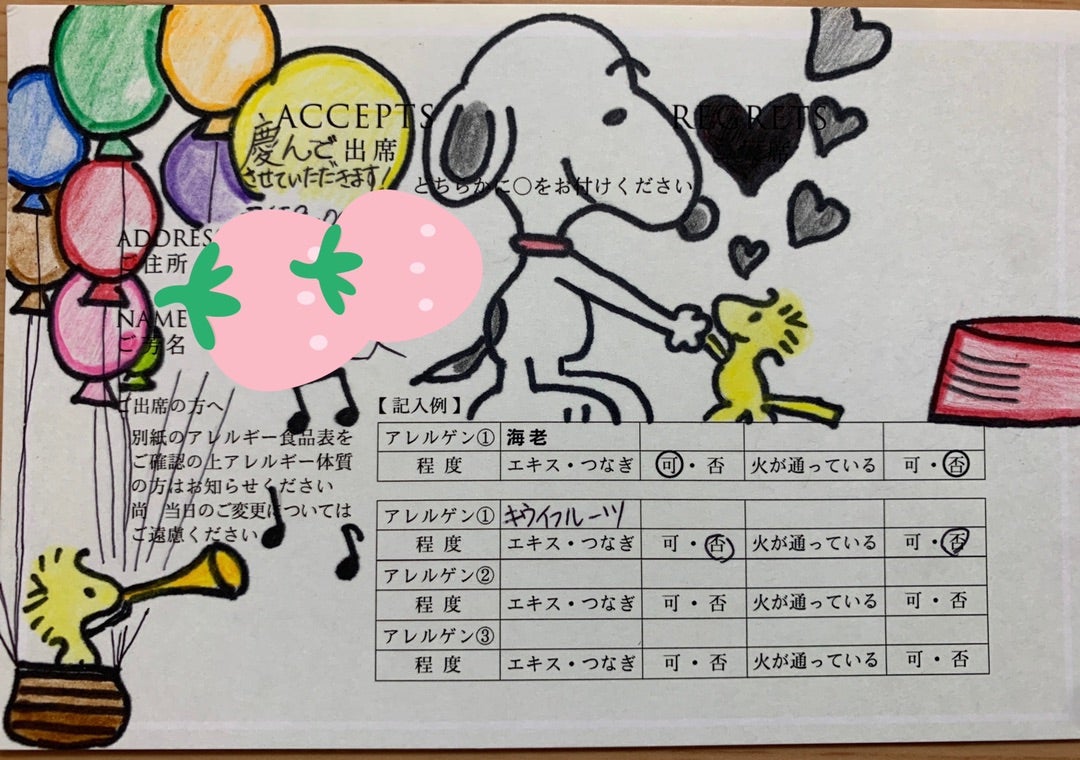 ACCEPTS
慶んで出席
させていただきます!
REGRETS
どちらかに○をお付けください
ADDRESS
ご住所
NAME
ご芳名
ご出席の方へ
別紙のアレルギー食品表を
ご確認の上アレルギー体質
の方はお知らせください
尚 当日のご変更については
ご遠慮ください
【記入例】
アレルゲン① 海老
程度 エキス・つなぎ 可・否 火が通っている 可・否
アレルゲン① キウイフルーツ
程度 エキス・つなぎ 可・否 火が通っている 可・否
アレルゲン②
程度 エキス・つなぎ 可・否 火が通っている 可・否
アレルゲン③
程度 エキス・つなぎ 可・否 火が通っている 可・否